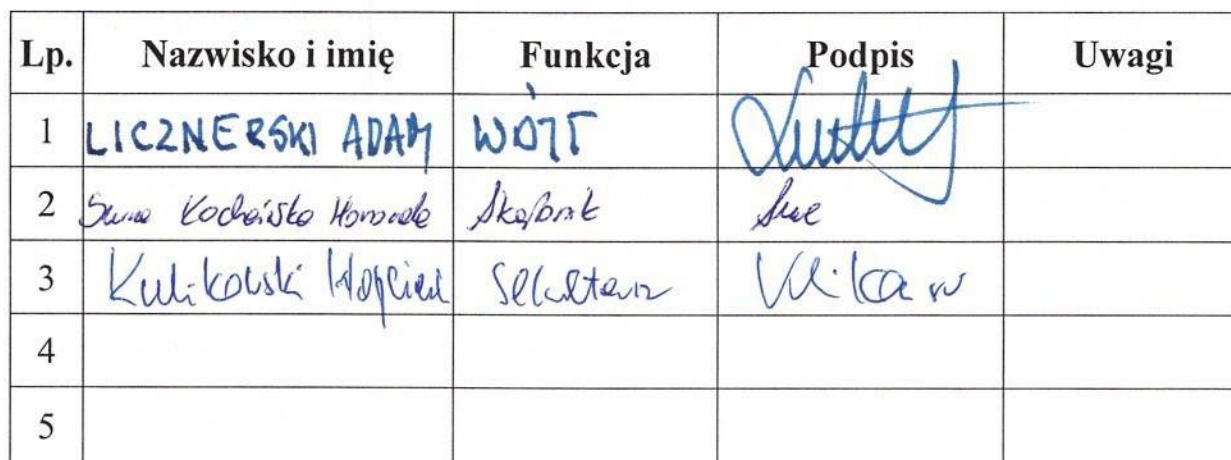 Lp. Nazwisko i imię Funkcja Podpis Uwagi
1 LICZNERSKI ADAM WÓJT
2 Kochańska Skarbnik
3 Kulikowski Wojciech Sekretarz
4
5